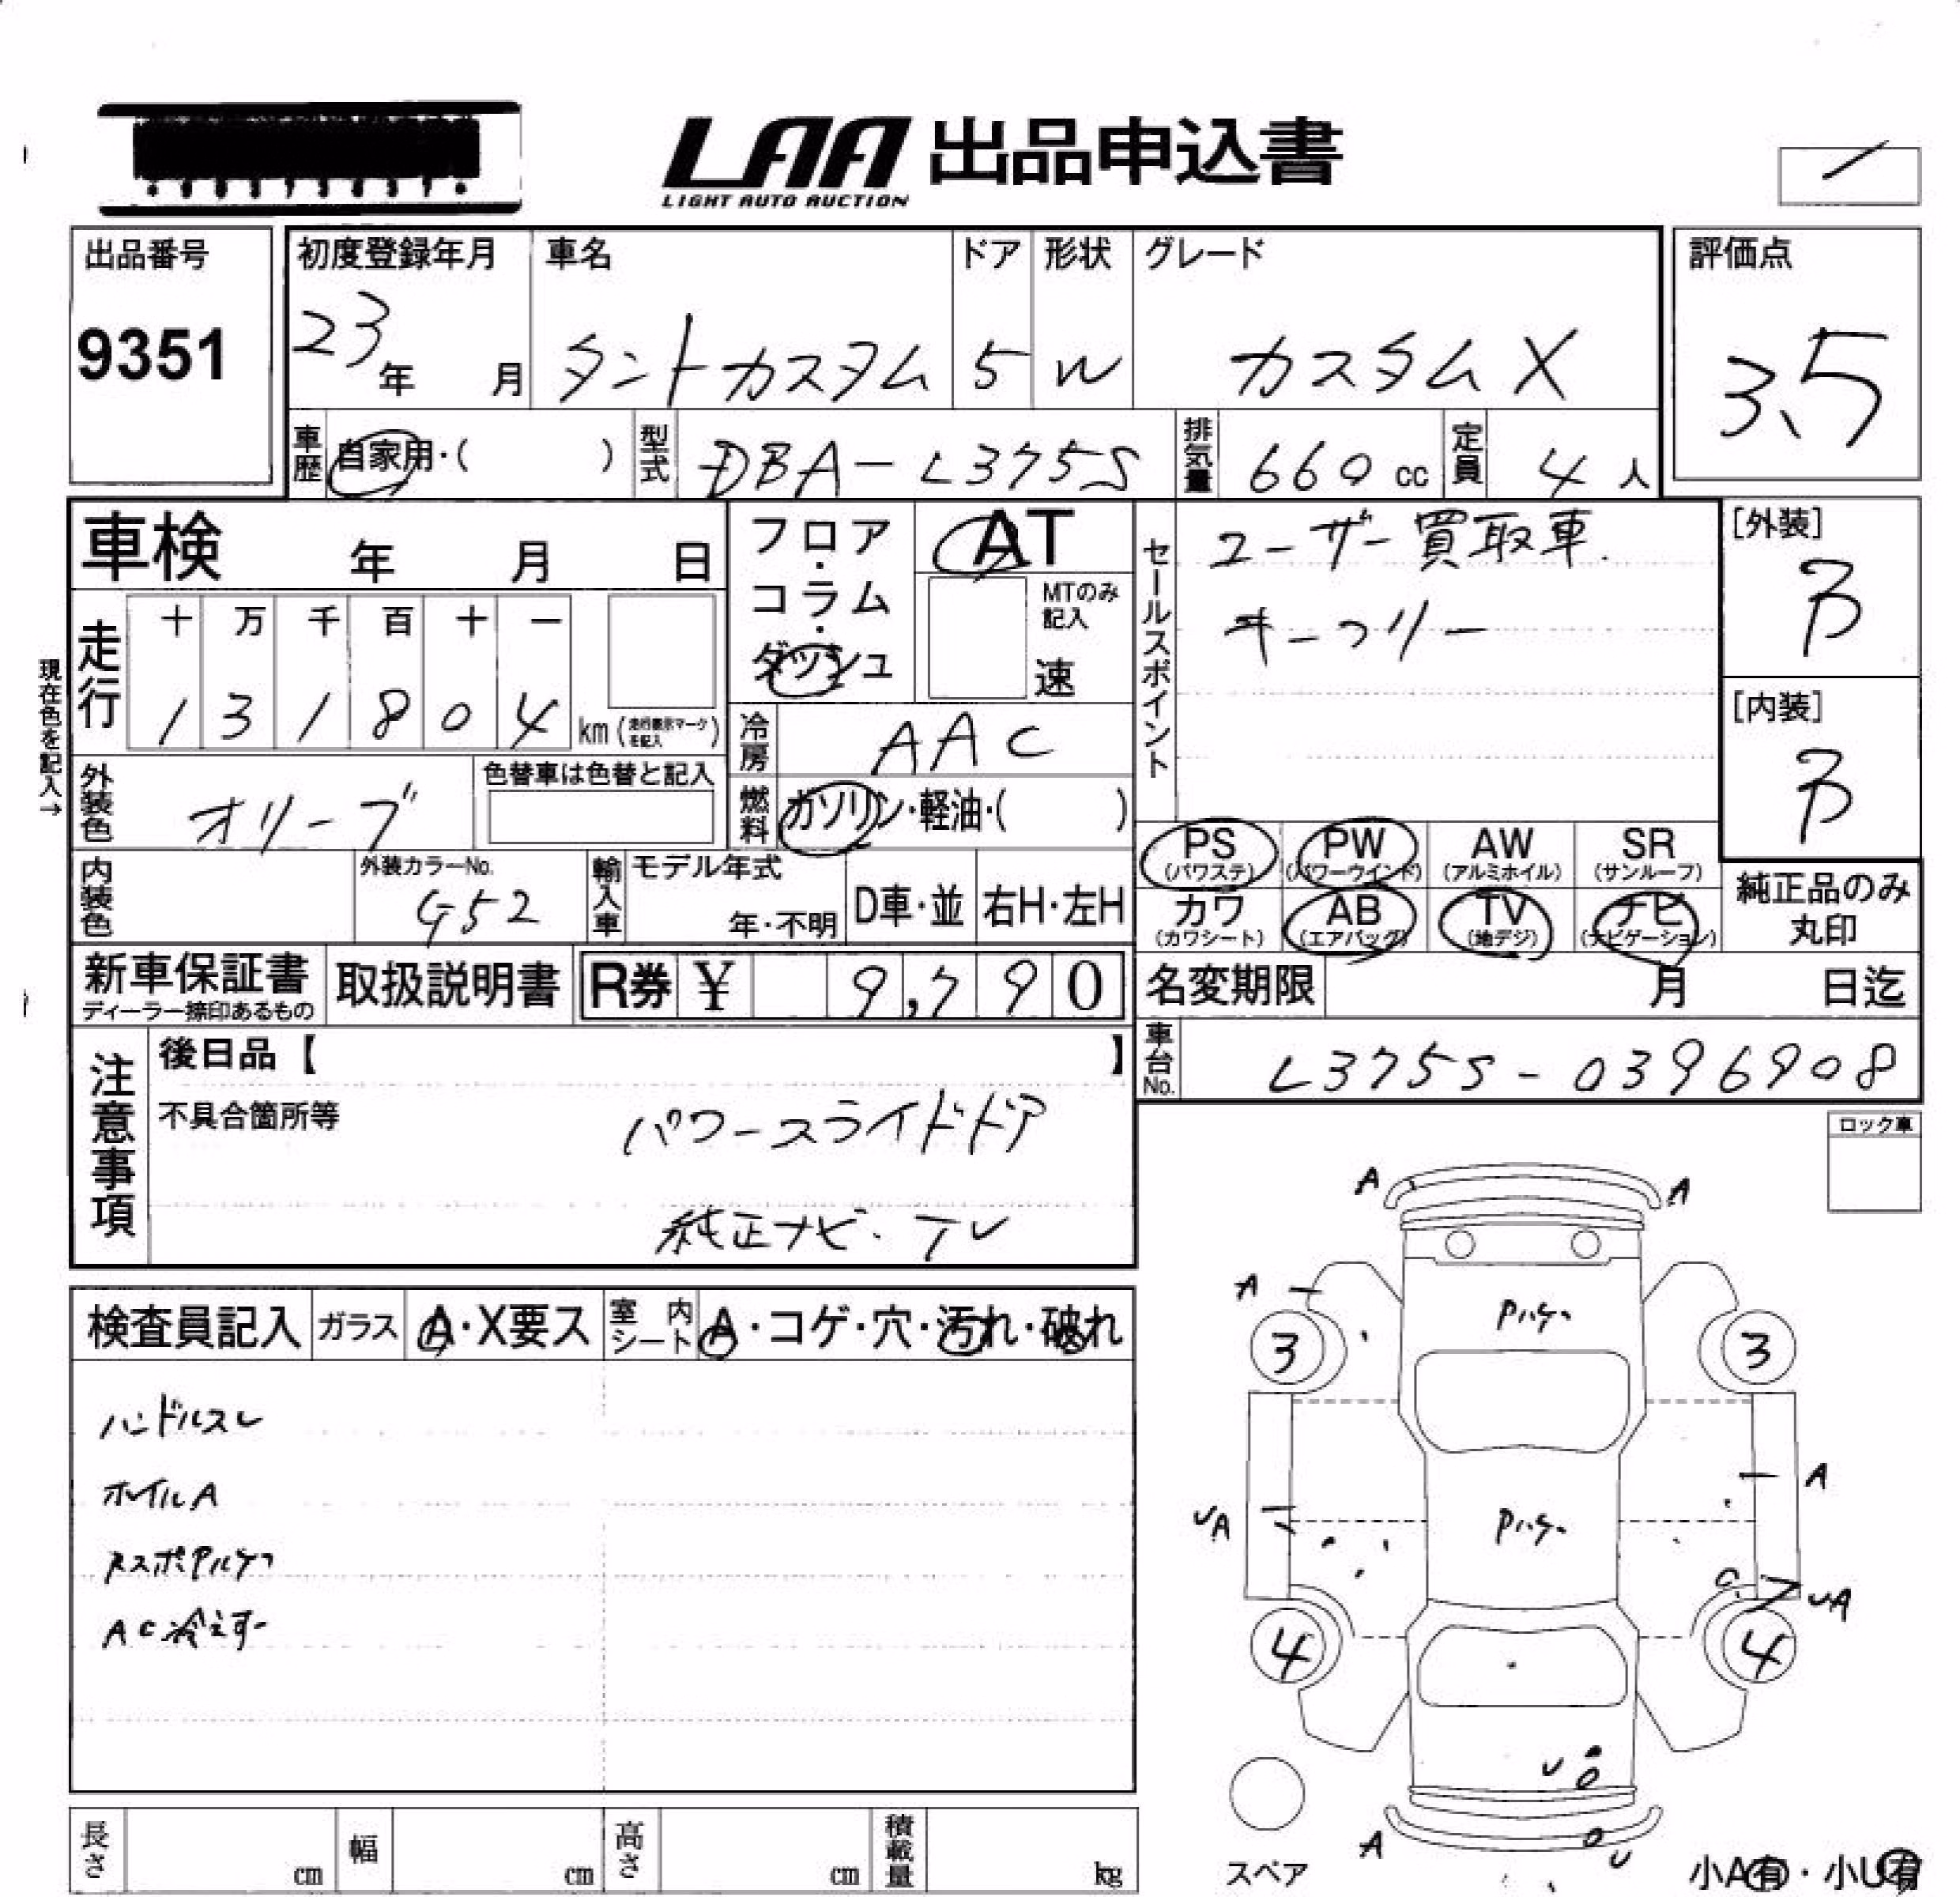 LAA 出品申込書
LIGHT AUTO AUCTION
出品番号
9351
初度登録年月
23年 月
車名
タントカスタム
ドア
5
形状
W
グレード
カスタムX
評価点
3.5
車歴 自家用・( )
型式 DBA-L375S
排気量 660 cc
定員 4 人
車検 年 月 日
現在色を記入→
走行
十 万 千 百 十 一
1 3 1 8 0 4 km (走行表示マークを記入)
フロア・コラム・ダッシュ
AT
MTのみ記入
速
冷房 AAC
燃料 ガソリン・軽油・( )
外装色 オリーブ
色替車は色替と記入
内装色
外装カラーNo.
G52
輸入車
モデル年式
年・不明
D車・並
右H・左H
セールスポイント
ユーザー買取車.
キーフリー
[外装]
B
[内装]
B
PS (パワステ)
PW (パワーウインド)
AW (アルミホイル)
SR (サンルーフ)
カワ (カワシート)
AB (エアバッグ)
TV (地デジ)
ナビ (ナビゲーション)
純正品のみ丸印
新車保証書
ディーラー捺印あるもの
取扱説明書
R券 ¥ 9,790
名変期限 月 日迄
車台No. L375S-0396908
注意事項
後日品【 】
不具合箇所等
パワースライドドア
純正ナビ・TV
ロック車
検査員記入
ガラス A・X要ス
室内シート A・コゲ・穴・汚れ・破れ
ハンドルスレ
ホイルA
AC冷えず
A A
A
Pハゲ
3 3
A
UA
Pハゲ
UA
4 4
U
A
U
スペア
小A有・小U有
長さ cm
幅 cm
高さ cm
積載量 kg